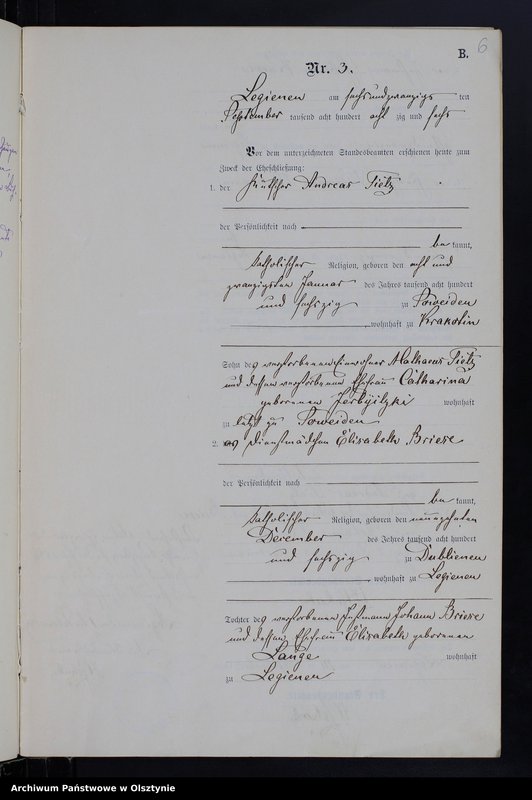 B.
6
Nr. 3.
Legienen am sechsundzwanzigsten
September tausend acht hundert acht zig und sechs
Vor dem unterzeichneten Standesbeamten erschienen heute zum
Zweck der Eheschließung:
1. der Kutscher Andreas Tietz
der Persönlichkeit nach
be kannt,
katholischer Religion, geboren den acht und
zwanzigsten Januar des Jahres tausend acht hundert
und sechszig zu Soweiden
, wohnhaft zu Krakotin
Sohn des verstorbenen Einwohner Mathaeus Tietz
und dessen verstorbenen Ehefrau Catharina
geborenen wohnhaft
zu letzt zu Soweiden
2. die Dienstmädchen Elisabeth Briese
der Persönlichkeit nach
be kannt,
katholischer Religion, geboren den neunzehnten
December des Jahres tausend acht hundert
und sechszig zu Dublienen
, wohnhaft zu Legienen
Tochter des verstorbenen Instmann Johann Briese
und dessen Ehefrau Elisabeth geborenen
Lange wohnhaft
zu Legienen
Archiwum Państwowe w Olsztynie